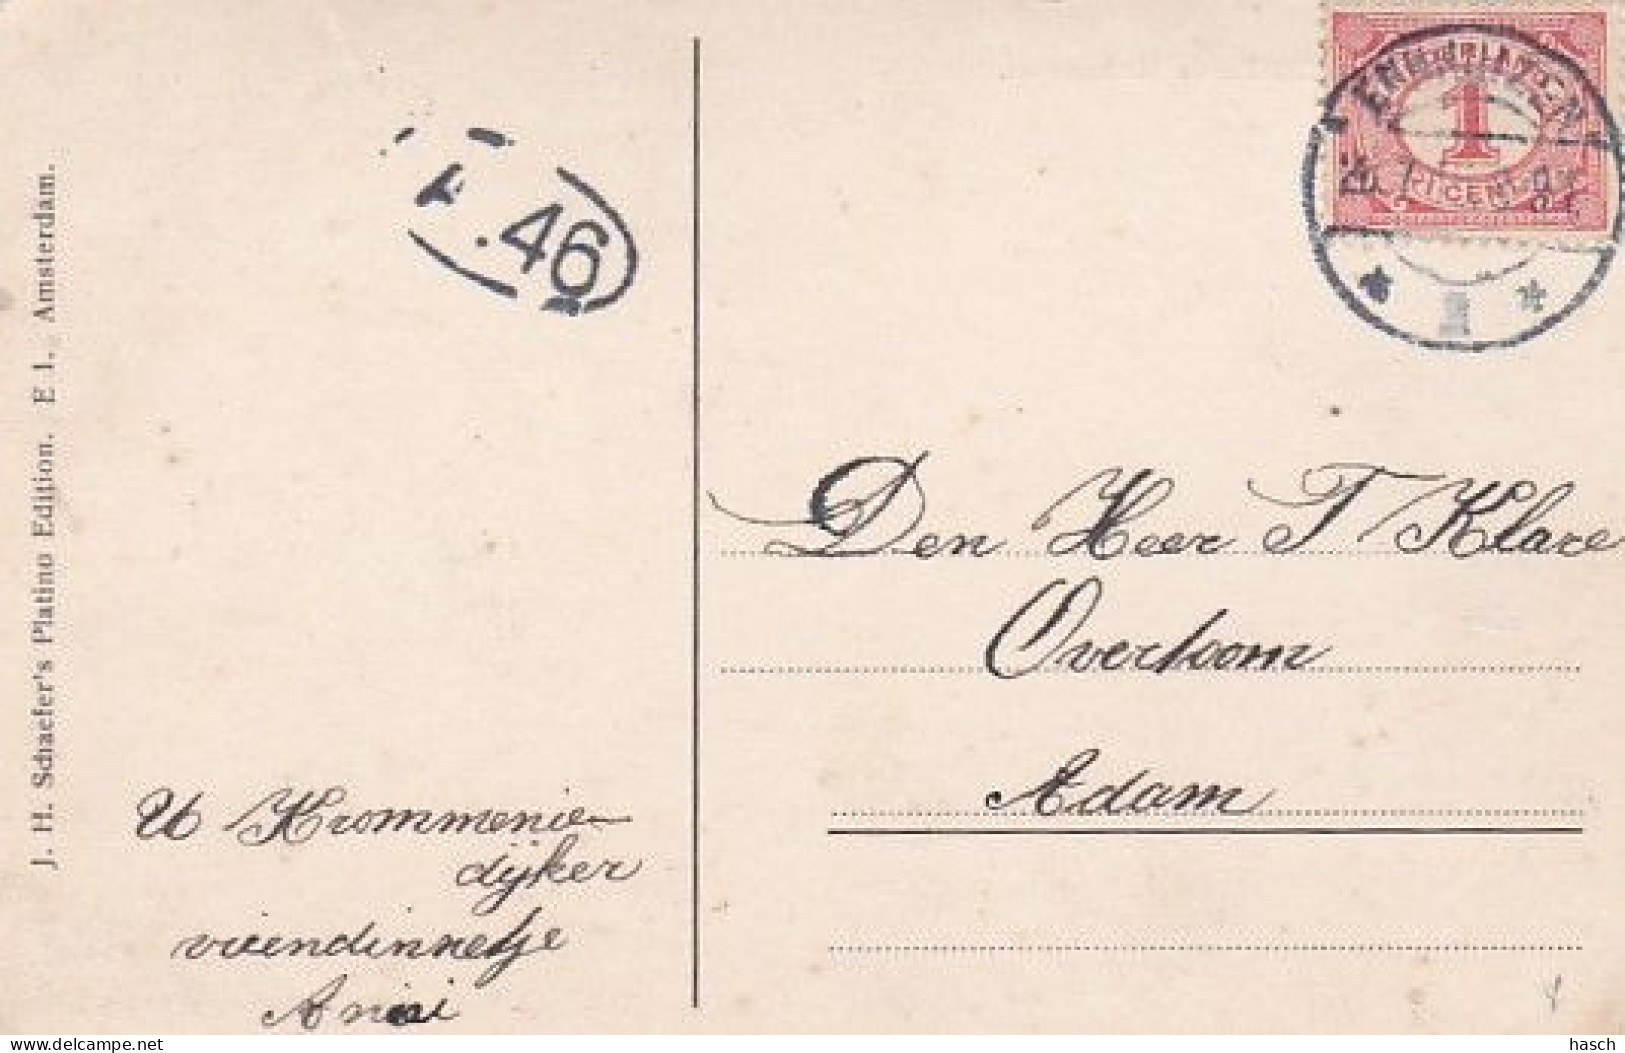 J. H. Schaefer's Platino Edition. E 1. Amsterdam.
A .46
1
1 CENT
Den Heer T Klare
Overtoom
Adam
U Krommenie-
dijker
vriendinnetje
delcampe.net
hasch